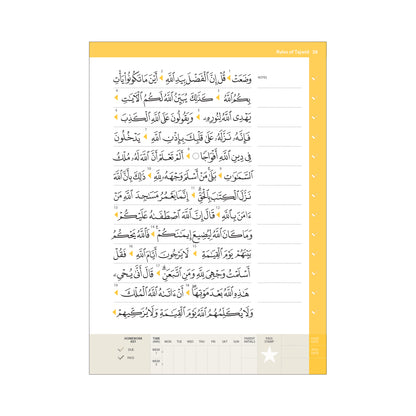 Rules of Tajwīd
وَضَعَتْ قُلْ إِنَّ ٱلْفَضْلَ بِيَدِ ٱللَّهِ أَيْنَ مَا تَكُونُوا۟ يَأْتِ
NOTES
بِكُمُ ٱللَّهُ كَذَٰلِكَ يُبَيِّنُ ٱللَّهُ لَكُمُ ٱلْـَٔايَـٰتِ
يَهْدِى ٱللَّهُ لِنُورِهِۦ وَيَقُولُونَ عَلَى ٱللَّهِ ٱلْكَذِبَ
فَإِنَّهُۥ نَزَّلَهُۥ عَلَىٰ قَلْبِكَ بِإِذْنِ ٱللَّهِ يَدْخُلُونَ
فِى دِينِ ٱللَّهِ أَفْوَاجًا أَلَمْ تَعْلَمْ أَنَّ ٱللَّهَ لَهُۥ مُلْكُ
ٱلسَّمَـٰوَٰتِ بَلَىٰ مَنْ أَسْلَمَ وَجْهَهُۥ لِلَّهِ ذَٰلِكَ بِأَنَّ ٱللَّهَ
نَزَّلَ ٱلْكِتَـٰبَ بِٱلْحَقِّ إِنَّمَا يَعْمُرُ مَسَـٰجِدَ ٱللَّهِ مَنْ
ءَامَنَ بِٱللَّهِ قَالَ إِنَّ ٱللَّهَ ٱصْطَفَىٰهُ عَلَيْكُمْ
وَمَا كَانَ ٱللَّهُ لِيُضِيعَ إِيمَـٰنَكُمْ فَٱللَّهُ يَحْكُمُ
بَيْنَهُمْ يَوْمَ ٱلْقِيَـٰمَةِ لَا يَرْجُونَ أَيَّامَ ٱللَّهِ فَقُلْ
أَسْلَمْتُ وَجْهِىَ لِلَّهِ وَمَنِ ٱتَّبَعَنِ قَالَ أَنَّىٰ يُحْىِۦ
هَـٰذِهِ ٱللَّهُ بَعْدَ مَوْتِهَا أَنْ ءَاتَىٰهُ ٱللَّهُ ٱلْمُلْكَ
وَلَا يُكَلِّمُهُمُ ٱللَّهُ يَوْمَ ٱلْقِيَـٰمَةِ وَلَا يُزَكِّيهِمْ
HOMEWORK KEY TIME MON TUE WED THU FRI SAT SUN PARENT INITIALS
DUE WEEK 1
WEEK 2